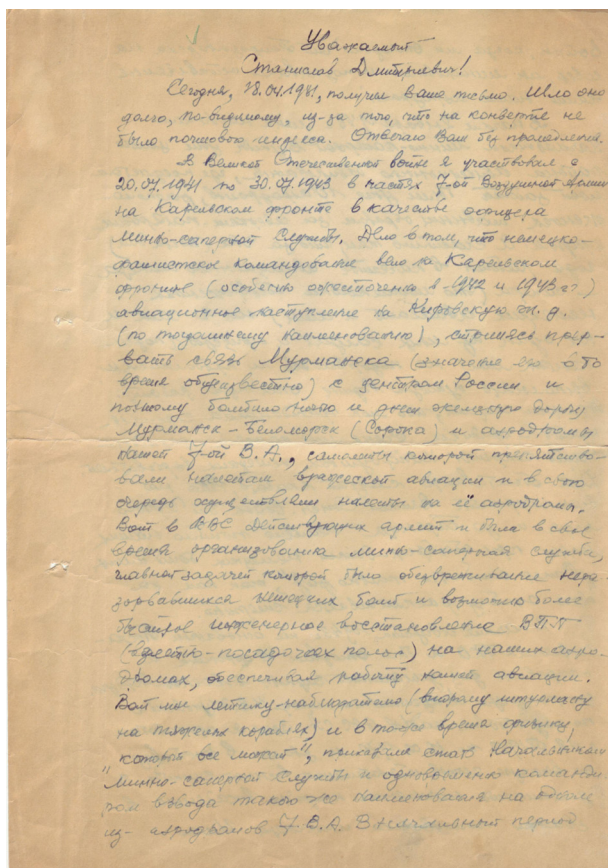 Уважаемый
Станислав Дмитриевич!
Сегодня, 28.04.1981, получил ваше письмо. Шло оно
долго, по-видимому, из-за того, что на конверте не
было почтового индекса. Отвечаю Вам без промедления.
В Великой Отечественной войне я участвовал с
20.07.1941 по 30.07.1943 в частях 7-ой Воздушной Армии
на Карельском фронте в качестве офицера
минно-саперной службы. Дело в том, что немецко-
фашистское командование вело на Карельском
фронте (особенно ожесточенно в 1942 и 1943 гг)
авиационное наступление на Кировскую ж.д.
(по тогдашнему наименованию), стремясь прер-
вать связь Мурманска (значение его в то
время общеизвестно) с центром России и
поэтому бомбило ночью и днем железную дорогу
Мурманск-Беломорск (Сорока) и аэродромы
нашей 7-ой В.А., самолеты которой препятство-
вали налетам вражеской авиации и в свою
очередь осуществляли налеты на её аэродромы.
Вот в ВВС действующих армий и была в свое
время организована минно-саперная служба,
главной задачей которой было обезвреживание нера-
зорвавшихся немецких бомб и возможно более
быстрое инженерное восстановление ВПП
(взлетно-посадочных полос) на наших аэро-
дромах, обеспечивая работу нашей авиации.
Вот мне летчику-наблюдателю (второму штурману
на тяжелых кораблях) и в то же время физику,
"который все может", приказали стать Начальником
минно-саперной службы и одновременно команди-
ром взвода такого же наименования на одном
из аэродромов 7 В.А. В период